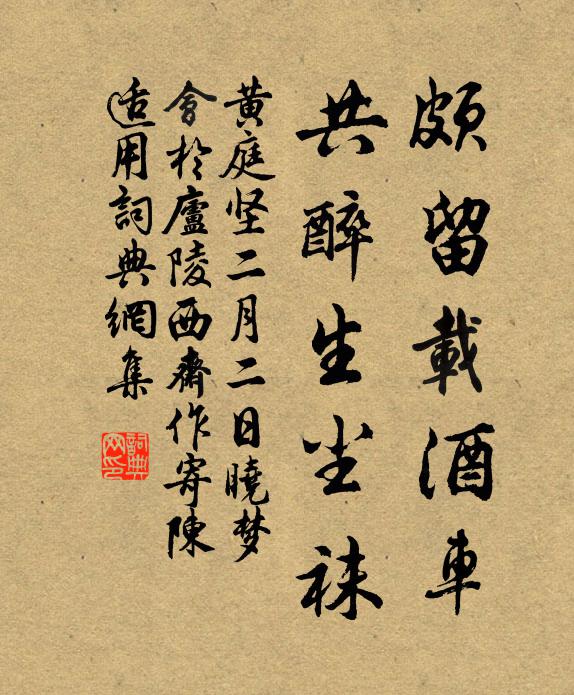 頗留載酒車
共醉生尘袜
黄庭坚二月二日曉梦
會於廬陵西齋作寄陳
适用詞典網集
詞典
网印